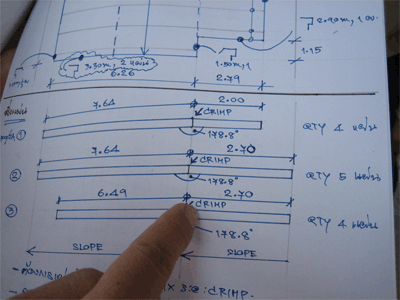 2.90m, 1 แผ่น
1.15
3.30m, 2 แผ่น
1.50m, 1
6.26
2.79
7.64
2.00
CRIMP
① 178.8° QTY 4 แผ่น
7.64
2.70
CRIMP
② 178.8° QTY 5 แผ่น
6.49
2.70
③ CRIMP QTY 4 แผ่น
178.8°
SLOPE
SLOPE
CRIMP.